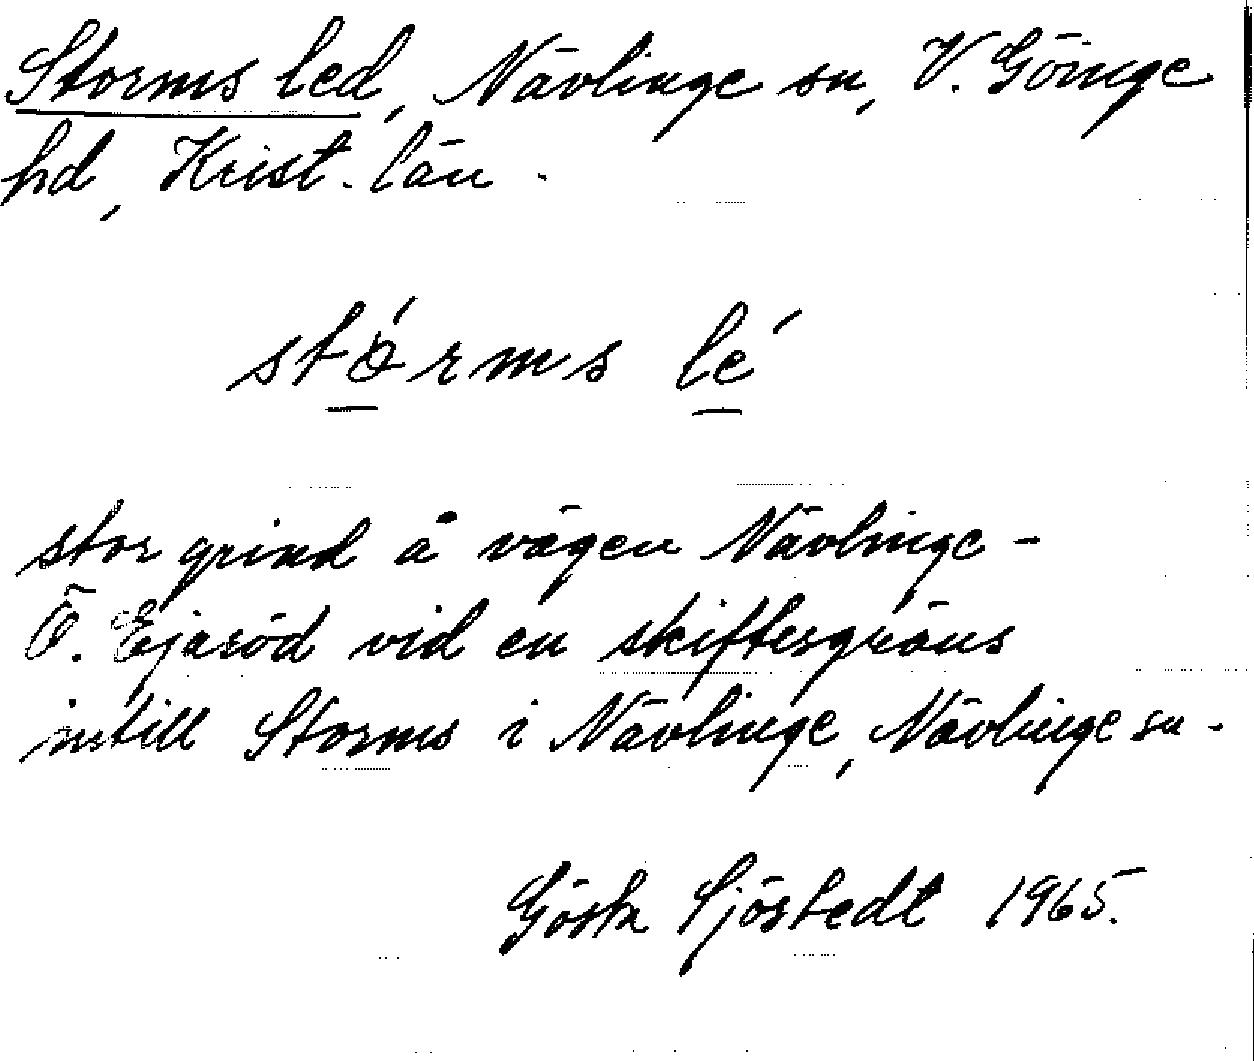 Storms led, Nävlinge sn, V. Göinge
hd, Krist. län.
stórms lé
stor grind å vägen Nävlinge -
Ö. Ejaröd vid en skiftesgräns
intill Storms i Nävlinge, Nävlinge sn.
Gösta Sjöstedt 1965.